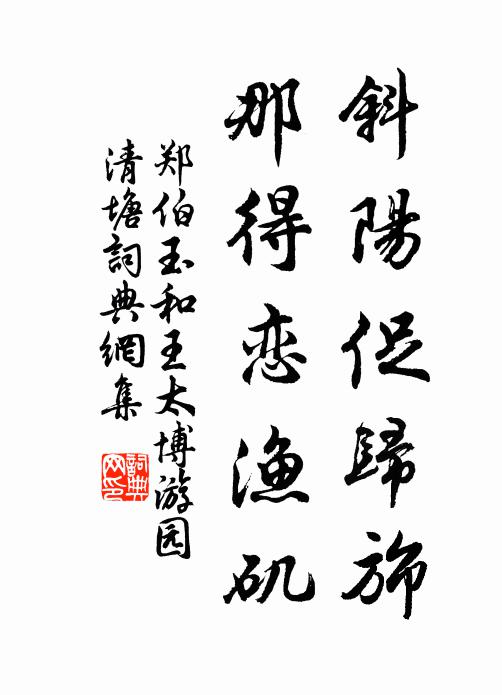 斜陽促歸旆
那得恋漁矶
郑伯玉和王太博游园
清塘詞典網集
詞典网印